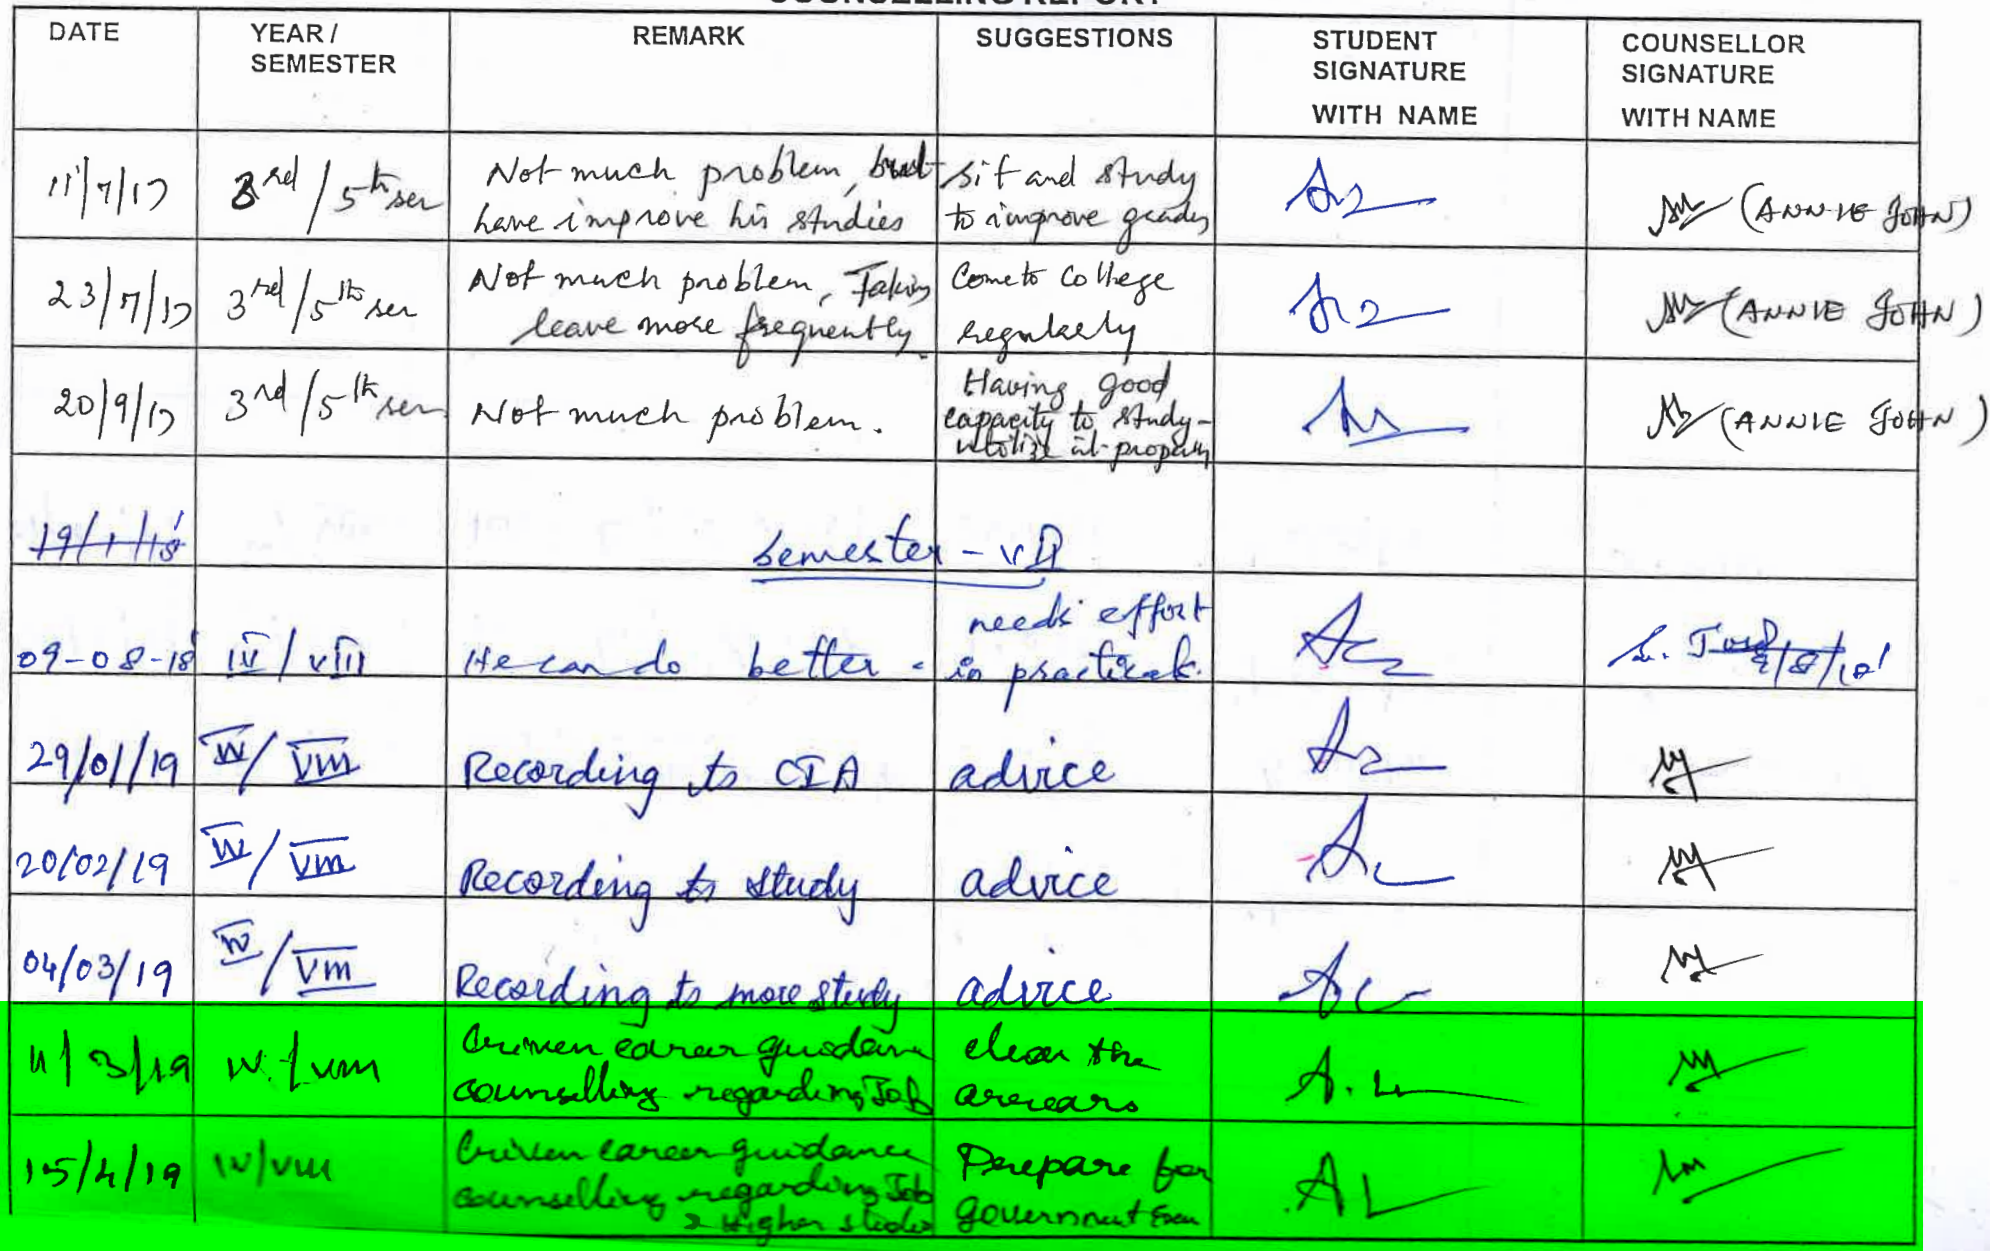 COUNSELLING REPORT
DATE YEAR / SEMESTER REMARK SUGGESTIONS STUDENT SIGNATURE WITH NAME COUNSELLOR SIGNATURE WITH NAME
11/7/17 3rd / 5th sem Not much problem, but sit and study
have improve his studies to improve grades (ANNIE JOHN)
23/7/17 3rd/5th sem Not much problem, Taking Come to College
leave more frequently. regularly (ANNIE JOHN)
20/9/17 3rd/5th sem Not much problem. Having good
capacity to study-
utilize it properly (ANNIE JOHN)
19/1/18
Semester - VII
09-08-18 IV / VII He can do better. needs effort
in practicals. 9/8/18
29/01/19 IV/VIII Recording to CIA advice
20/02/19 IV/VIII Recording to study advice
04/03/19 IV/VIII Recording to more study advice
11/3/19 IV/VIII Given career guidance clear the
counselling regarding Job arrears
15/4/19 IV/VIII Given career guidance Prepare for
counselling regarding Job Government Exam
& Higher studies